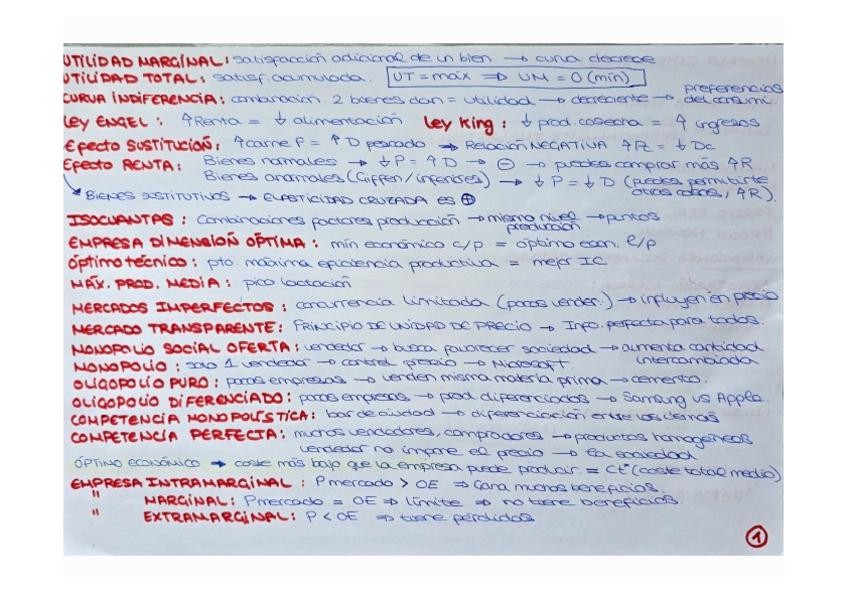 UTILIDAD MARGINAL: satisfacción adicional de un bien → curva decrece
UTILIDAD TOTAL: satisf. acumulada. UT = máx ⇒ UM = 0 (mín)
CURVA INDIFERENCIA: combinación 2 bienes dan = utilidad → decreciente → preferencias del consumi.
Ley ENGEL: ↑Renta = ↓ alimentación Ley King: ↓ prod. cosecha = ↑ ingresos
Efecto SUSTITUCIÓN: ↑ carne P = ↑ D pescado → Relación NEGATIVA ↑Pc = ↓ Dc
Efecto RENTA: Bienes normales → ↓P = ↑D → ⊖ → puedes comprar más ↑R
Bienes anormales (Giffen/inferiores) → ↓P = ↓D (puedes permitirte otras cosas, ↑R).
BIENES SUSTITUTIVOS → ELASTICIDAD CRUZADA ES ⊕
ISOCUANTAS: combinaciones factores producción → mismo nivel producción → puntos
EMPRESA DIMENSIÓN ÓPTIMA: mín económico c/p = óptimo econ. l/p
Óptimo técnico: pto. máxima eficiencia productiva = mejor IC
MÁX. PROD. MEDIA: pico lactación
MERCADOS IMPERFECTOS: concurrencia limitada (pocos vender.) → influyen en precio
MERCADO TRANSPARENTE: PRINCIPIO DE UNIDAD DE PRECIO → Info. perfecta para todos.
MONOPOLIO SOCIAL OFERTA: vendedor → busca favorecer sociedad → aumenta cantidad intercambiada
MONOPOLIO: solo 1 vendedor → control precio → Microsoft.
OLIGOPOLIO PURO: pocas empresas → venden misma materia prima → cemento.
OLIGOPOLIO DIFERENCIADO: pocas empresas → prod. diferenciados → Samsung vs Apple.
COMPETENCIA MONOPOLÍSTICA: bar de ciudad → diferenciación entre los demás
COMPETENCIA PERFECTA: muchos vendedores, compradores → productos homogéneos
vendedor no impone el precio → la sociedad
ÓPTIMO ECONÓMICO → coste más bajo que la empresa puede producir = (coste total medio)
EMPRESA INTRAMARGINAL: P mercado > OE ⇒ Gana muchos beneficios.
" MARGINAL: P mercado = OE ⇒ límite ⇒ no tiene beneficios.
" EXTRAMARGINAL: P < OE ⇒ tiene pérdidas
1